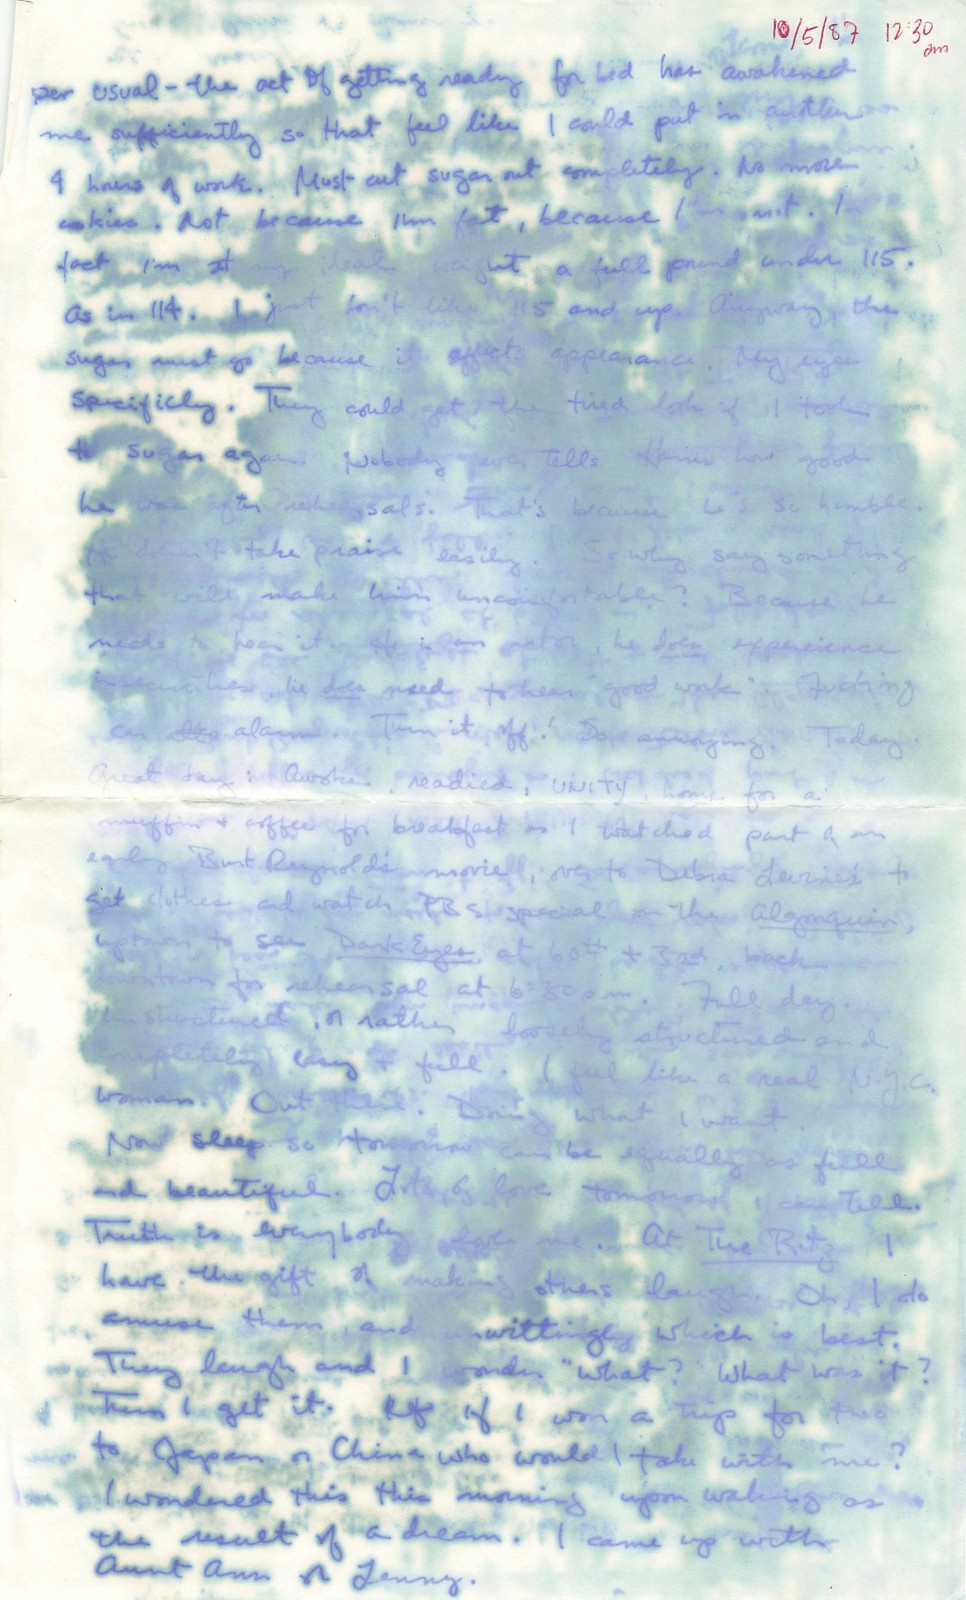 10/5/87 12:30
am
per usual - the act of getting ready for bed has awakened
me sufficiently so that feel like I could put in another
4 hours of work. Must cut sugar out completely. No more
cookies. Not because I'm fat, because I'm not. In
fact I'm at my ideal weight a full pound under 115.
As in 114. I just don't like 115 and up. Anyway, the
sugar must go because it affects appearance. My eyes
specificly. They could get the tired look if I took
to sugar again. Nobody ever tells how good
he was after rehearsals. That's because he's so humble.
He doesn't take praise easily. So why say something
that will make him uncomfortable? Because he
needs to hear it. He is an actor, he does experience
insecurities, he does need to hear "good work". Fucking
car alarm. Turn it off! So annoying. Today.
Great day: Awoke, readied, UNITY, home for a
muffin + coffee for breakfast as I watched part of an
early Burt Reynolds movie, over to Debra Levine's to
get clothes and watch PBS special on the Algonquin,
uptown to see Dark Eyes at 60th + 3rd, back
downtown for rehearsal at 6:30 pm. Full day.
Unstructured, or rather loosely structured and
completely easy + full. I feel like a real N.Y.C.
woman. Out there. Doing what I want.
Now sleep so tomorrow can be equally as full
and beautiful. Lots of love tomorrow I can tell.
Truth is everybody loves me. At The Ritz I
have the gift of making others laugh. Oh, I do
amuse them, and unwittingly which is best.
They laugh and I wonder "What? What was it?
Then I get it. If I won a trip for two
to Japan or China who would I take with me?
I wondered this this morning upon waking as
the result of a dream. I came up with
Aunt Ann or Lenny.